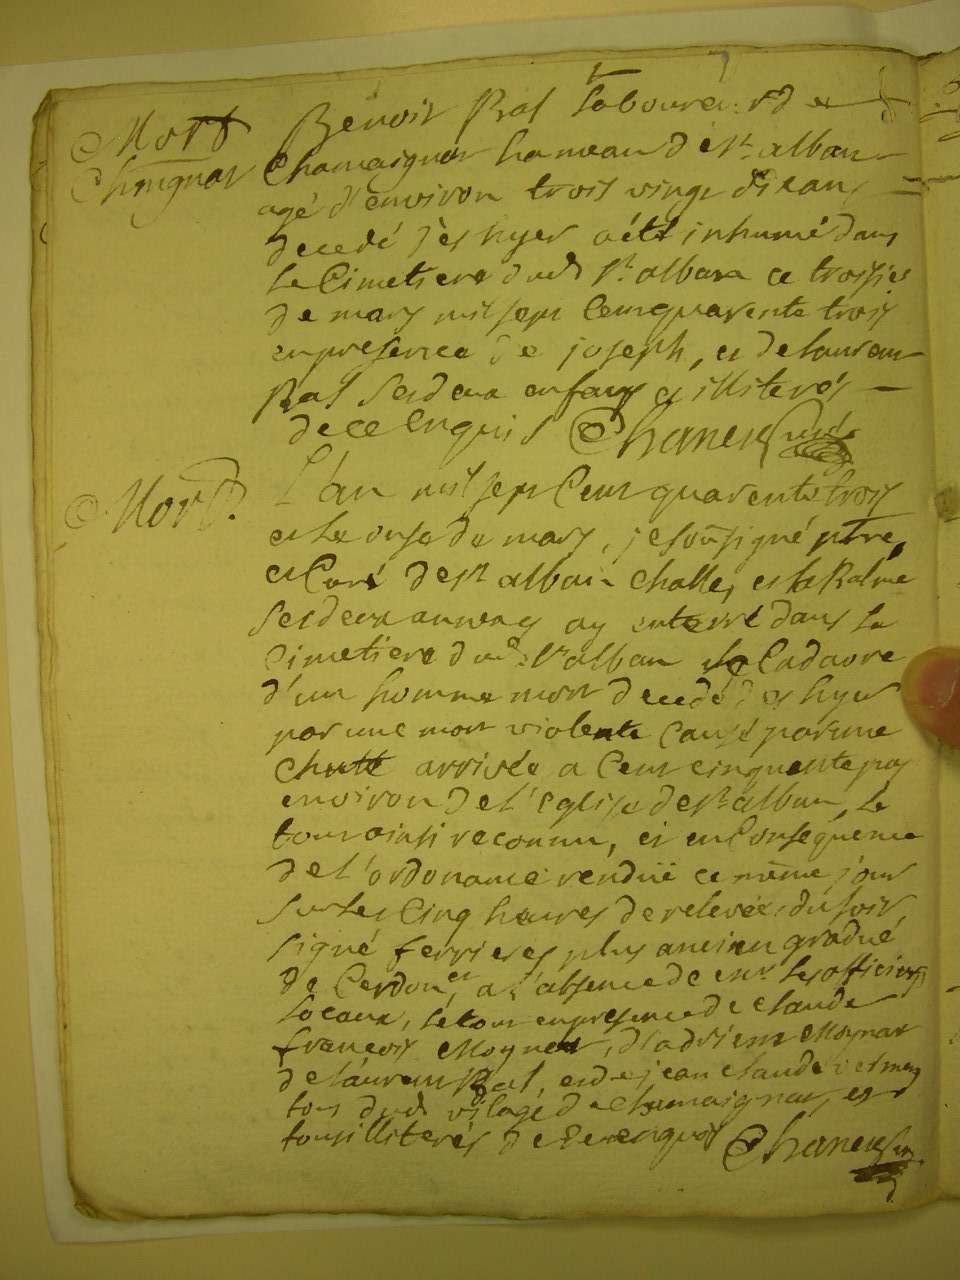 Mort
Chmgnat
Benoit Ral laboureur d de
Chamaignat hameau de St alban
agé d'environ trois vingt dix ans
decedé dès hyer a été inhumé dans
le Cimetiere dud St alban ce troisie
de mars mil sept Cent quarente trois
en presence de joseph, et de laurent
Ral ses deux enfans illiterés
de ce enquis Chanel curé
Mort.
L'an mil sept Cent quarente trois
et le onse de mars, je soûsigné ptre,
et Curé de St alban Challes et la Balme
ses deux annexes ay enterré dans le
Cimetiere dud St alban le Cadavre
d'un homme mort decedé dès hyer
par une mort violente Causé par une
chutte arrivée a Cent cinquente pas
environ de l'Eglise de St alban, le
tout ainsi reconnu, et en Conséquence
de l'ordonance rendüe ce même jour
sur les Cinq heures de relevée du soir,
signé ferrieres plus ancien gradué
de Cerdon, et a l'absence de mrs les officiers
locaux, le tout en presence de claude
françois Moynat, d'adrien Moynat
de laurent Ral, et de jean claude
tous dud vilage de chamaignat, et
tous illiterés de ce enquis Chanel curé